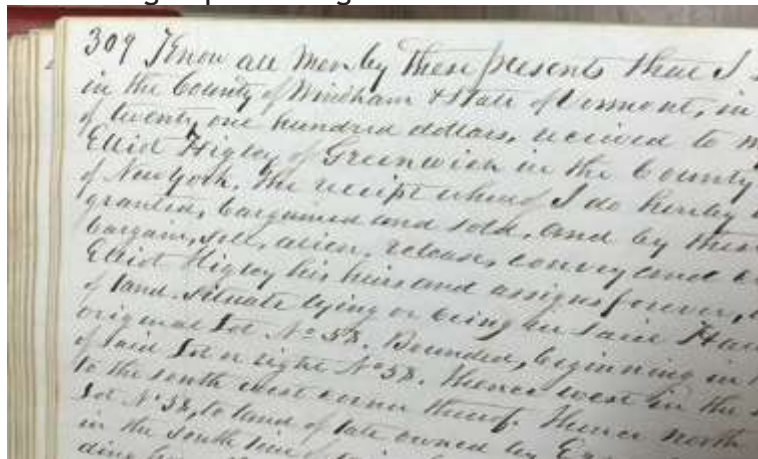 309 Know all Men by these presents that I
in the County of Windham & State of Vermont, in
of twenty one hundred dollars, received to
Elliot Higley of Greenwich in the County
of New York. the receipt whereof I do hereby
granted, bargained and sold, and by these
bargain, sell, alien, release, convey and
Elliot Higley his heirs and assigns forever,
of land. Situate lying or being in said
original Lot No 58. Bounded, beginning in
of said Lot or right No 58. thence west in the
to the south west corner thereof. thence north
Lot No 58, to land of late owned by
in the South line of